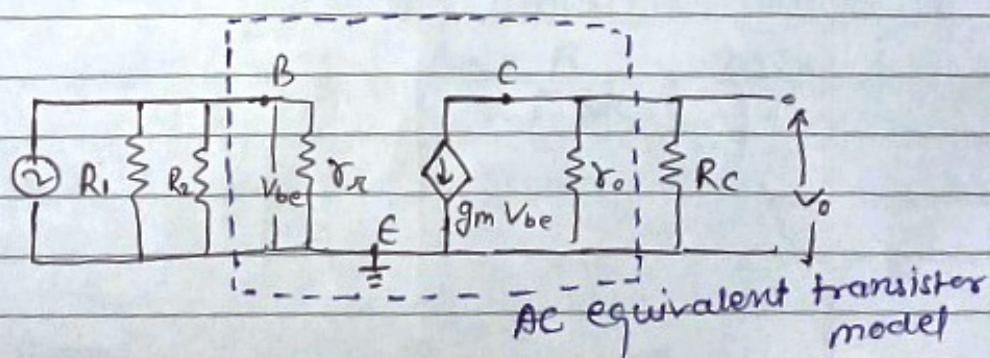 B
C
R₁
R₂
Vbe
rπ
gm Vbe
ro
RC
Vo
E
AC equivalent transistor
model